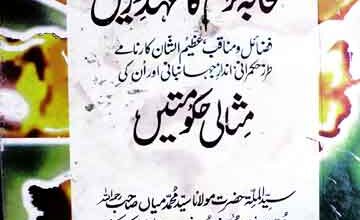 صحابہ کرام کا عہد زریں
فضائل و مناقب عظیم الشان کارنامے
طرز حکمرانی انداز جہانبانی اور ان کی
مثالی حکومتیں
سید الملۃ حضرت مولانا سید محمد میاں صاحب رحمہ اللہ